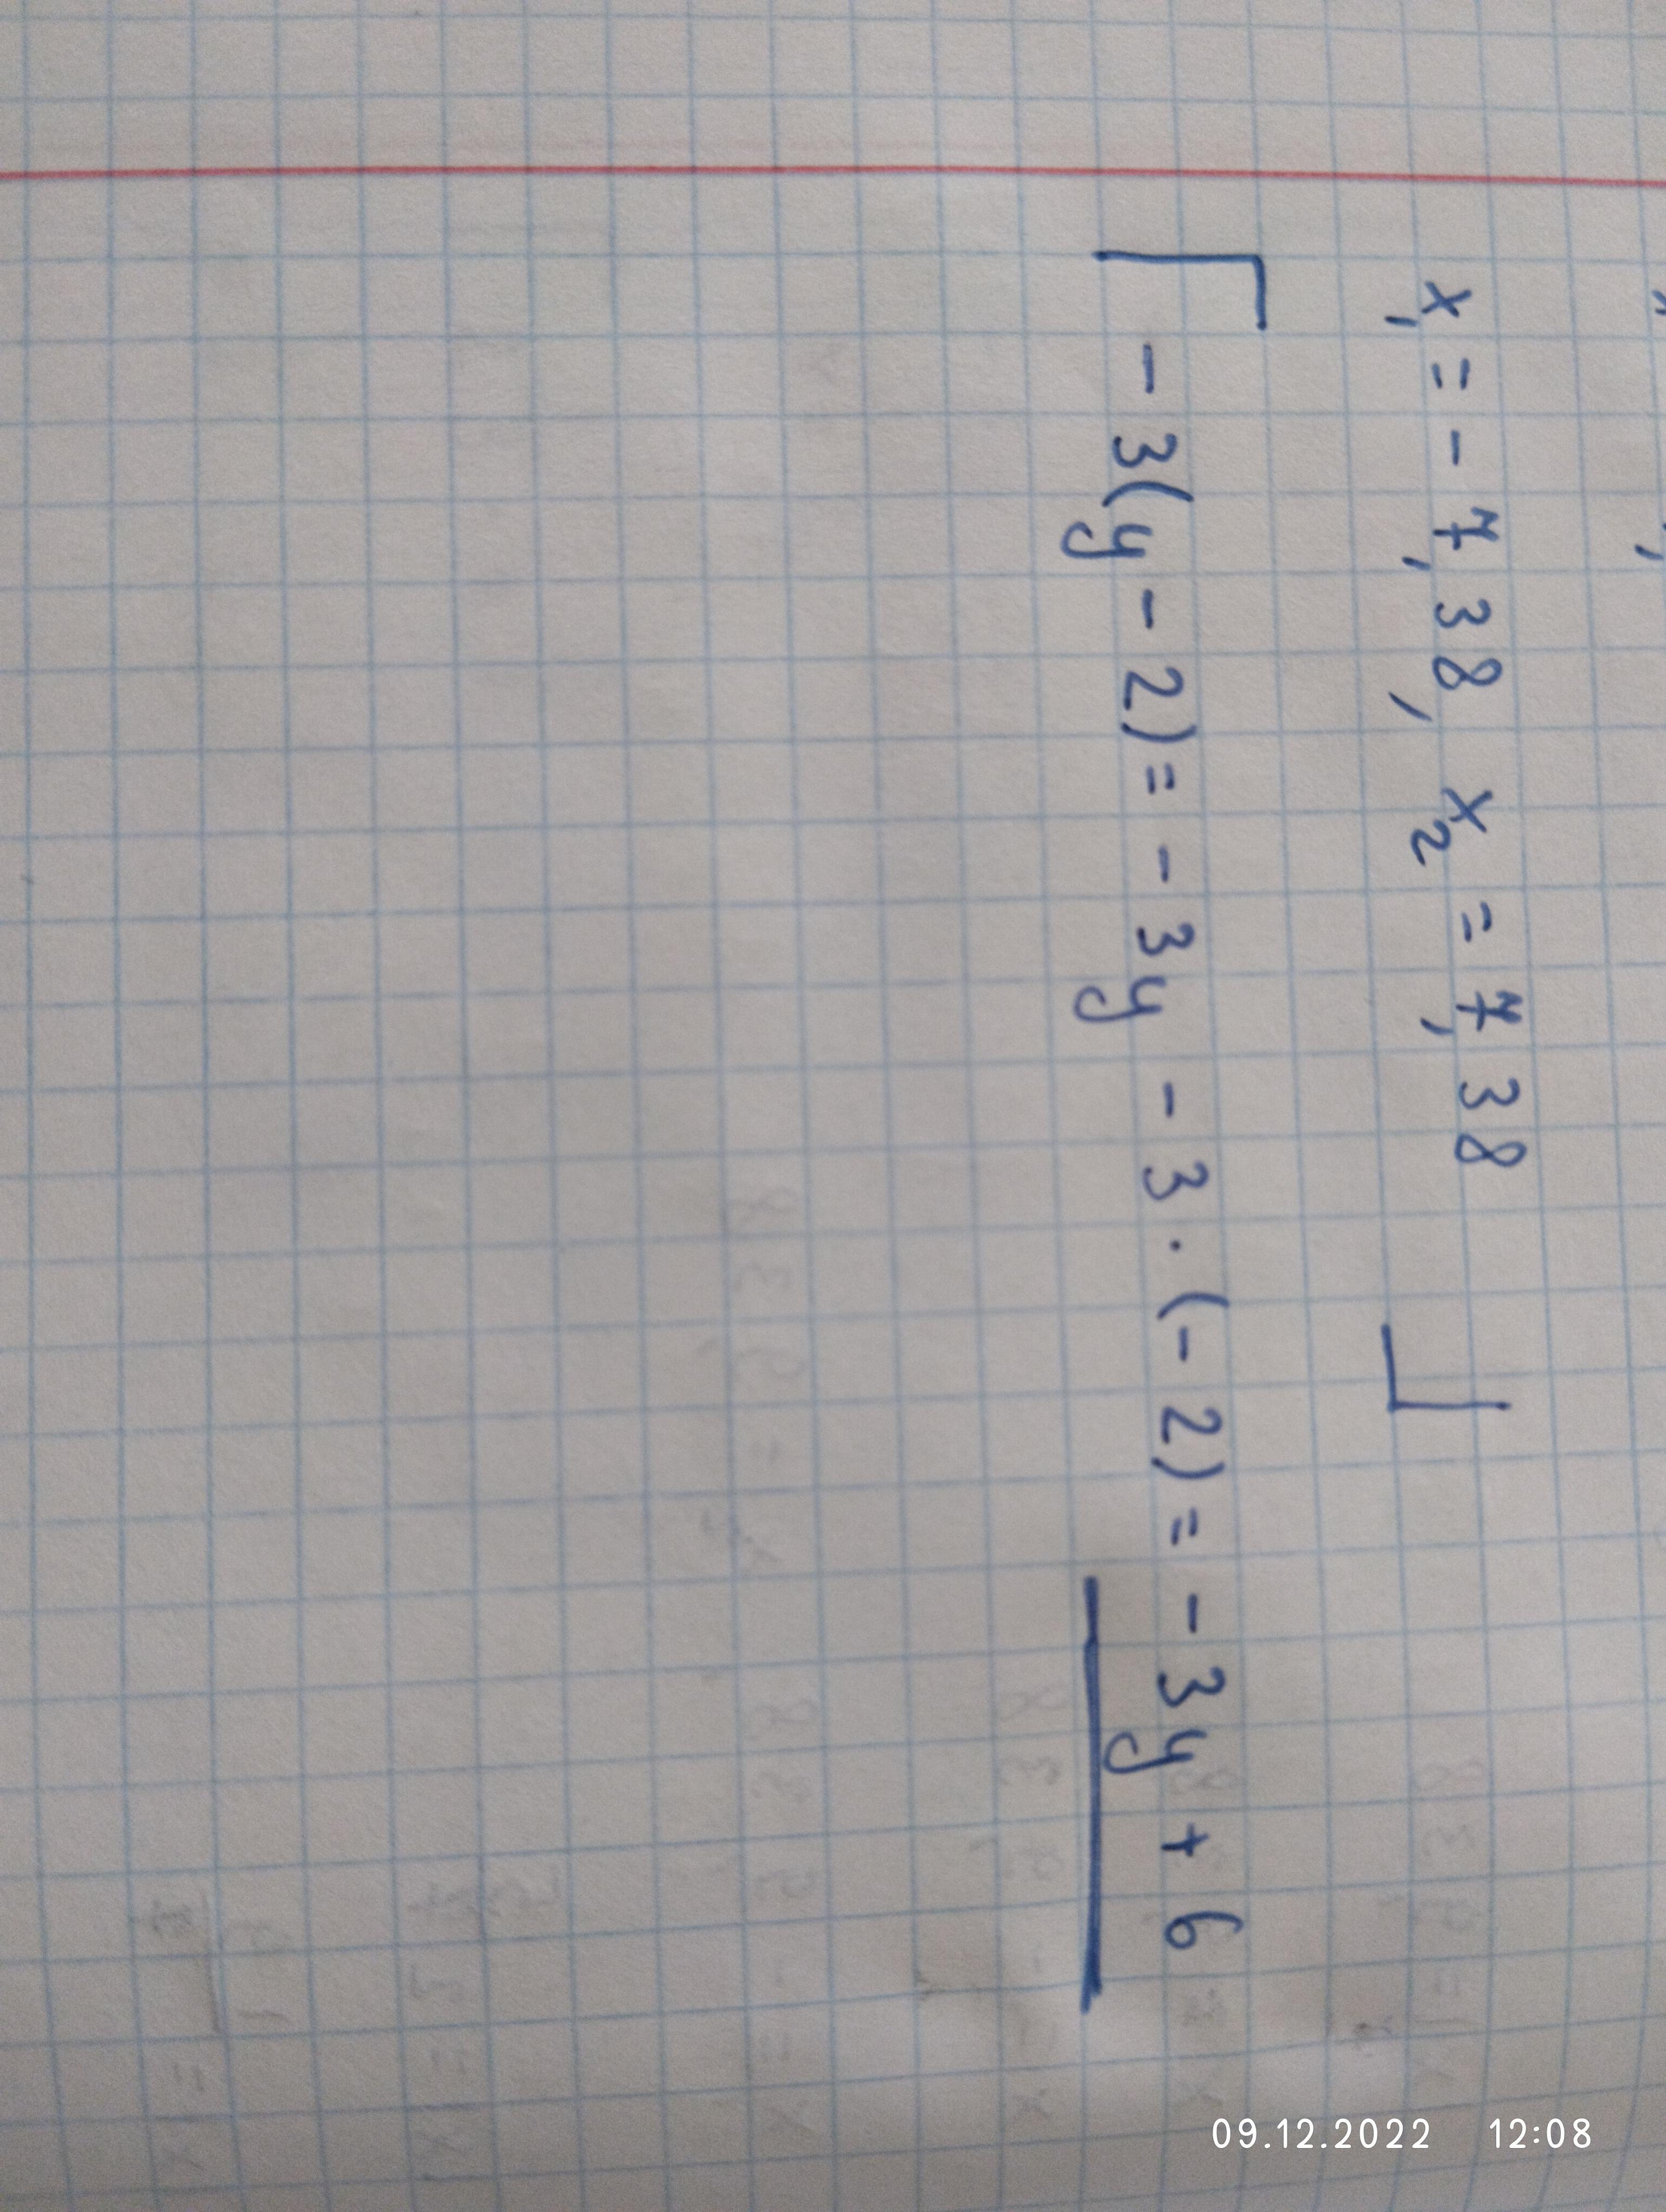 x₁ = - 7,38, x₂ = 7,38
- 3(y - 2) = - 3y - 3 · (- 2) = - 3y + 6
09.12.2022 12:08